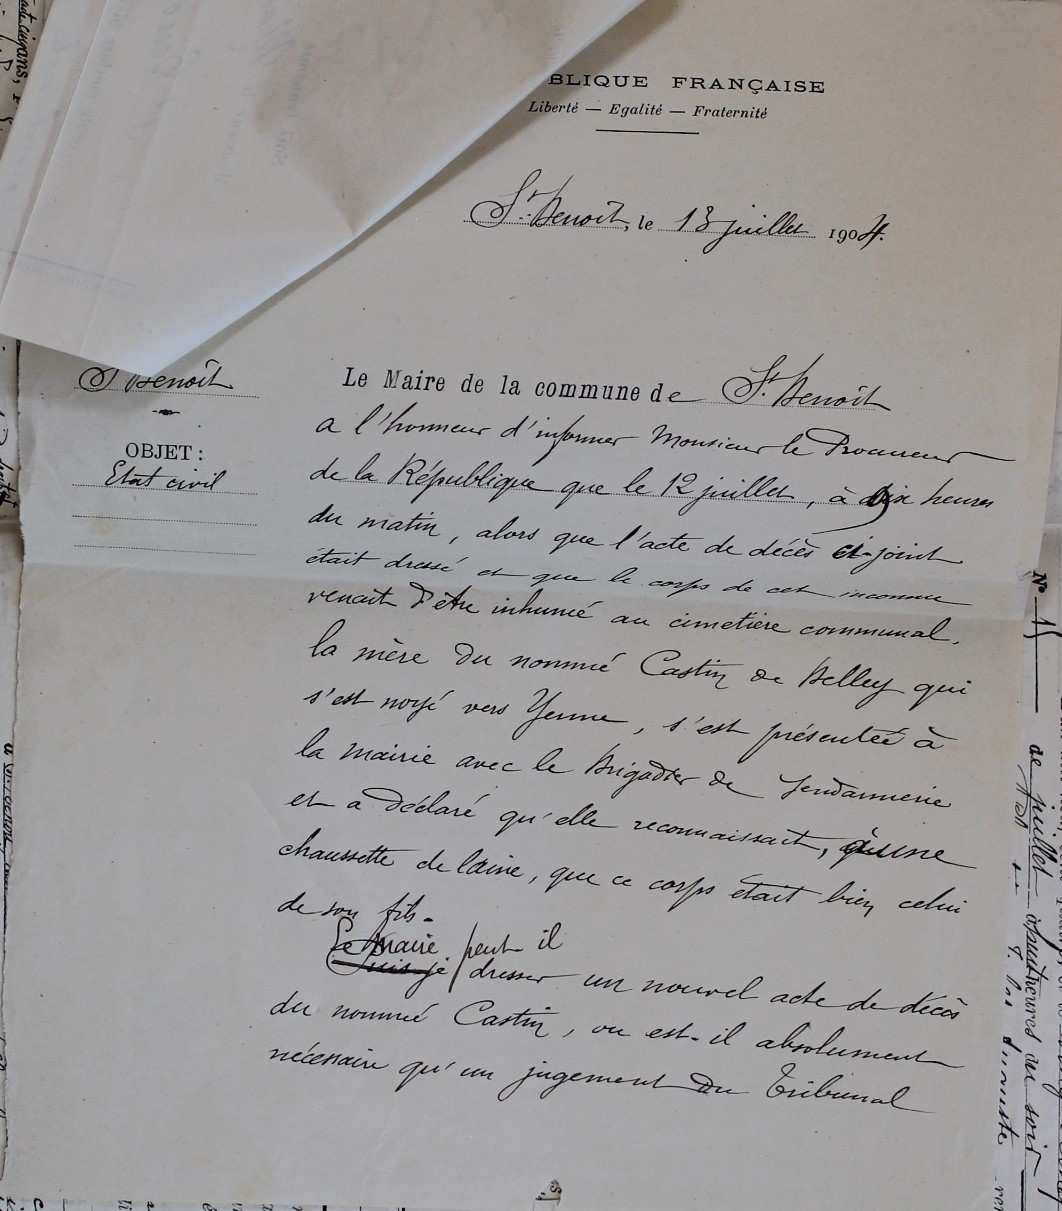 BLIQUE FRANÇAISE
Liberté — Egalité — Fraternité
St. Benoît, le 13 juillet 1904.
St Benoît
OBJET :
Etat civil
Le Maire de la commune de St. Benoît
a l'honneur d'informer Monsieur le Procureur
de la République que le 12 juillet, à dix heures
du matin, alors que l'acte de décès ci-joint
était dressé et que le corps de cet inconnu
venait d'être inhumé au cimetière communal.
la mère du nommé Castin de Belley qui
s'est noyé vers Yenne, s'est présentée à
la mairie avec le Brigadier de gendarmerie
et a déclaré qu'elle reconnaissait, à une
chaussette de laine, que ce corps était bien celui
de son fils.
Le Maire peut-il
Puis-je dresser un nouvel acte de décès
du nommé Castin, ou est-il absolument
nécessaire qu'un jugement du Tribunal
No 15
de juillet à sept heures du soir